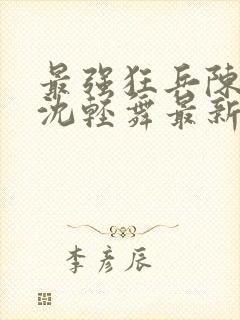 最强狂兵陈
沈轻舞最新
李彦辰